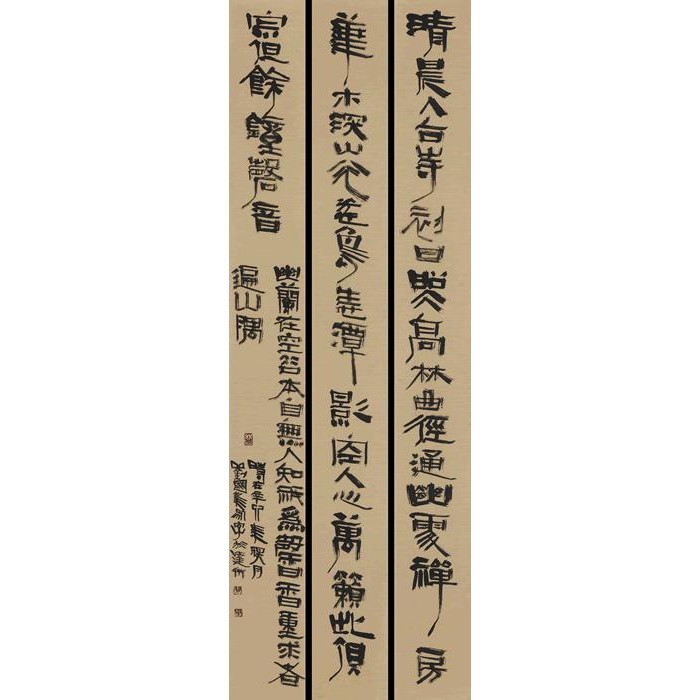 清晨入古寺初日照高林曲徑通幽處禪房
華木深山光悅鳥性潭影空人心萬籟此俱
寂但餘鐘磬音
幽蘭在空谷本自無人知祇爲馨香重求者
遍山隅
在辛卯月
劉國